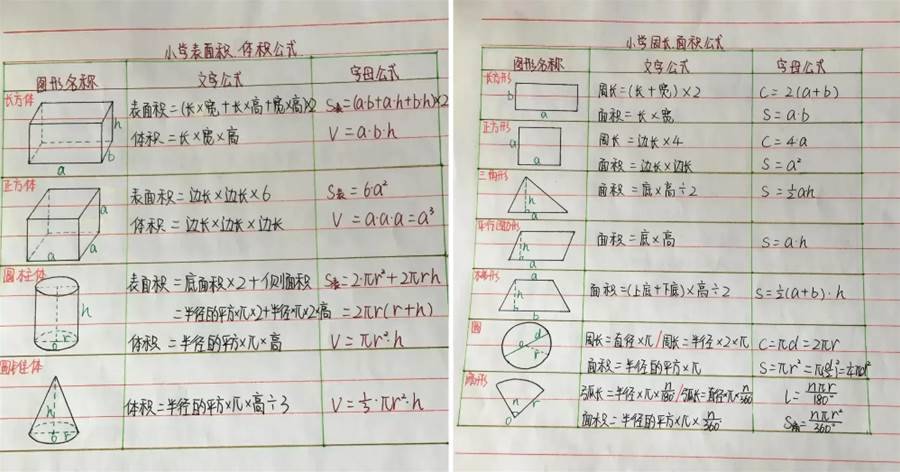 小学表面积、体积公式
图形名称 文字公式 字母公式
长方体
表面积=(长×宽+长×高+宽×高)×2 S表=(a·b+a·h+b·h)×2
体积=长×宽×高 V=a·b·h
h
b
a
正方体
表面积=边长×边长×6 S表=6a²
体积=边长×边长×边长 V=a·a·a=a³
a
a
a
圆柱体
表面积=底面积×2+侧面积 S表=2·πr²+2πrh
=半径的平方×π×2+半径×π×2×高 =2πr(r+h)
体积=半径的平方×π×高 V=πr²·h
h
o r
圆锥体
体积=半径的平方×π×高÷3 V=⅓·πr²·h
h
o r
小学周长、面积公式
图形名称 文字公式 字母公式
长方形
周长=(长+宽)×2 C=2(a+b)
面积=长×宽 S=a·b
b
a
正方形
周长=边长×4 C=4·a
面积=边长×边长 S=a²
a
a
三角形
面积=底×高÷2 S=½ah
h
a
平行四边形
面积=底×高 S=a·h
h
a
梯形
面积=(上底+下底)×高÷2 S=½(a+b)·h
a
h
b
圆
周长=直径×π/周长=半径×2×π C=πd=2πr
面积=半径的平方×π S=πr²=π(d/2)²=¼πd²
d
o
r
扇形
弧长=半径×π×n/180/弧长=直径×π×n/360 L=nπr/180°
面积=半径的平方×π×n/360° S扇=nπr²/360°
n r
o